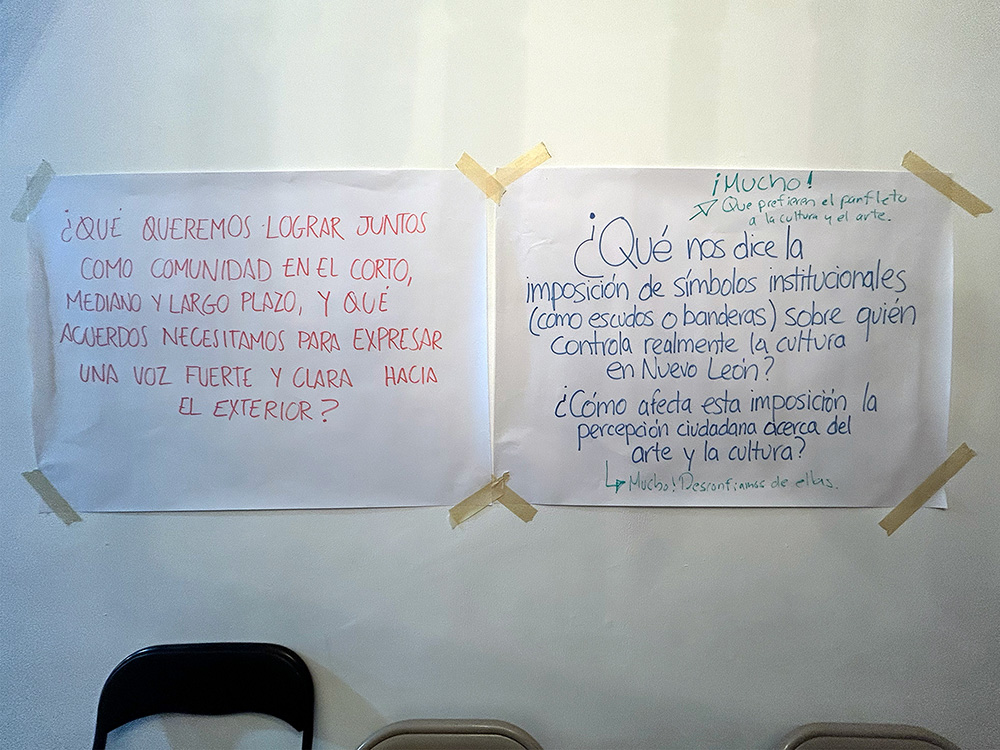 ¿QUÉ QUEREMOS LOGRAR JUNTOS
COMO COMUNIDAD EN EL CORTO,
MEDIANO Y LARGO PLAZO, Y QUÉ
ACUERDOS NECESITAMOS PARA EXPRESAR
UNA VOZ FUERTE Y CLARA HACIA
EL EXTERIOR?
¡Mucho!
Que prefieren el panfleto
a la cultura y el arte.
¿Qué nos dice la
imposición de símbolos institucionales
(como escudos o banderas) sobre quién
controla realmente la cultura
en Nuevo León?
¿Cómo afecta esta imposición la
percepción ciudadana acerca del
arte y la cultura?
Mucho! Desconfiamos de ellas.